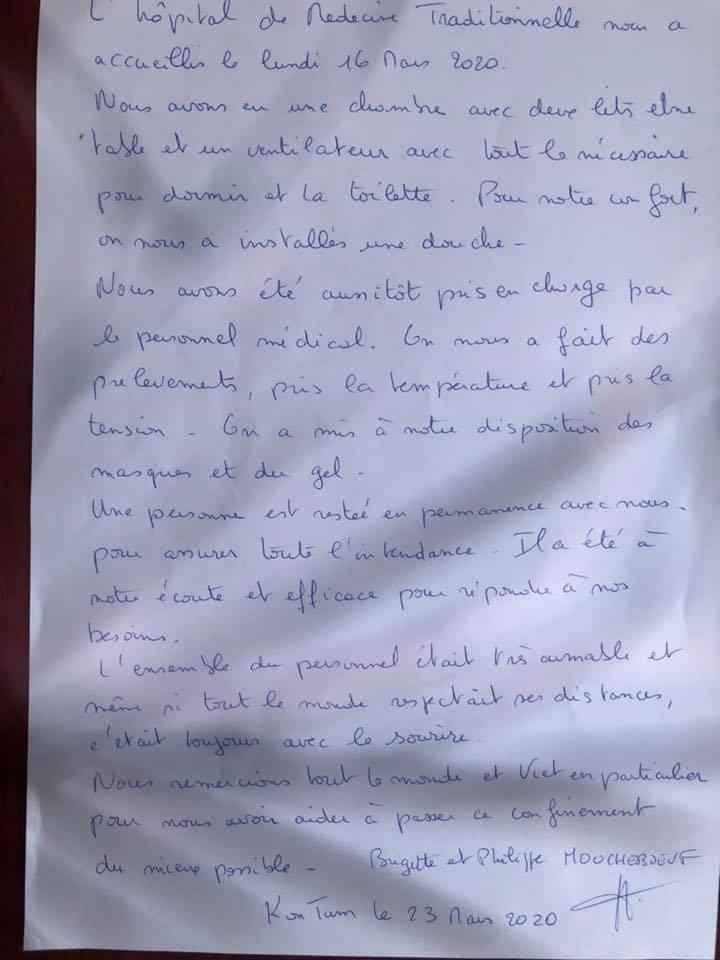 L'hôpital de Medecine Traditionnelle nous a
accueillis le lundi 16 Mars 2020.
Nous avons eu une chambre avec deux lits et une
table et un ventilateur avec tout le nécessaire
pour dormir et la toilette. Pour notre confort,
on nous a installés une douche -
Nous avons été aussitôt pris en charge par
le personnel médical. On nous a fait des
prelevements, pris la température et pris la
tension - On a mis à notre disposition des
masques et du gel.
Une personne est restée en permanence avec nous.
pour assurer toute l'intendance. Il a été à
notre écoute et efficace pour répondre à nos
besoins.
L'ensemble du personnel était très aimable et
même si tout le monde respectait ses distances,
c'était toujours avec le sourire.
Nous remercions tout le monde et Viet en particulier
pour nous avoir aider à passer ce confinement
du mieux possible - Brigitte et Philippe MOUCHEBOEUF
KonTum le 23 Mars 2020